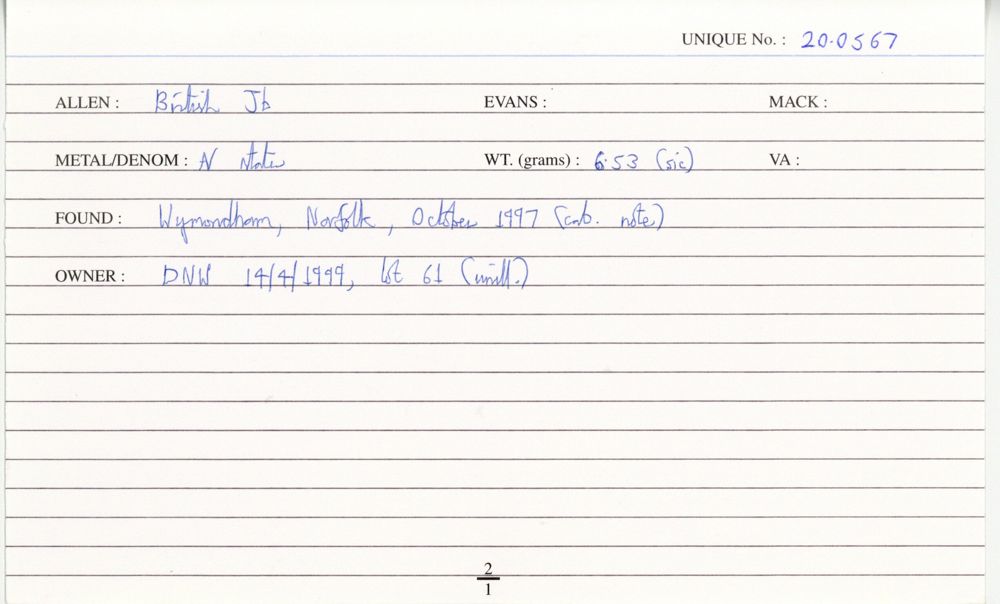 UNIQUE No. : 20.0567
ALLEN : British Jb EVANS : MACK :
METAL/DENOM : N stater WT. (grams) : 6.53 (sic) VA :
FOUND : Wymondham, Norfolk, October 1997 (cab. note)
OWNER : DNW 14/4/1999, lot 61 (unill.)
2
1